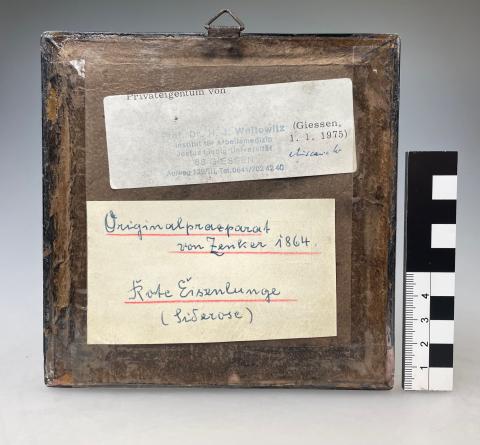 Privateigentum von
Prof. Dr. H. J. Woitowitz (Giessen,
Institut für Arbeitsmedizin 1. 1. 1975)
Justus-Liebig-Universität
63 GIESSEN
Tel. 0641/702 42 40
Originalpraeparat
von Zenker 1864.
Rote Eisenlunge
(Siderose)
4
3
2
1